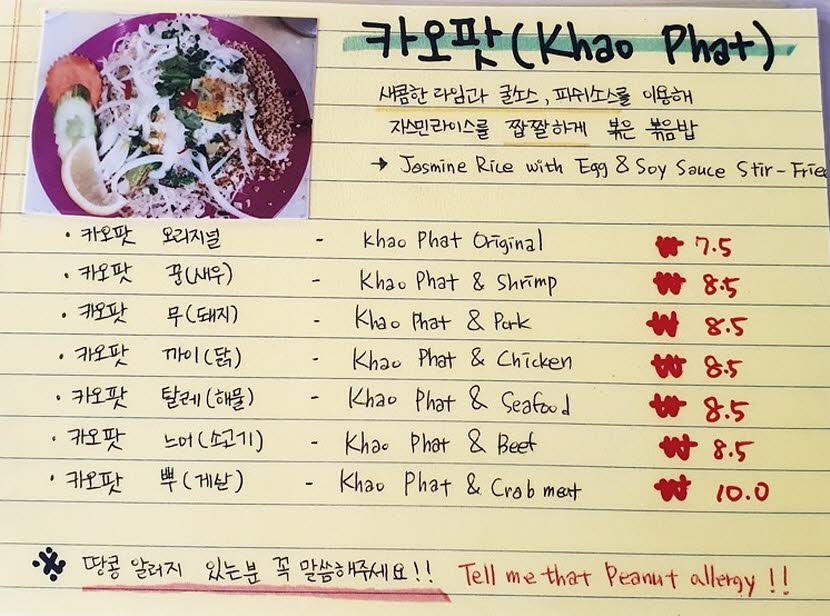 카오팟 (Khao Phat)
새콤한 라임과 굴소스, 피쉬소스를 이용해
자스민라이스를 짭짤하게 볶은 볶음밥
→ Jasmine Rice with Egg & Soy Sauce Stir-Fried
• 카오팟 오리지널 - Khao Phat Original ₩ 7.5
• 카오팟 꿍(새우) - Khao Phat & Shrimp ₩ 8.5
• 카오팟 무(돼지) - Khao Phat & Pork ₩ 8.5
• 카오팟 까이(닭) - Khao Phat & Chicken ₩ 8.5
• 카오팟 탈레(해물) - Khao Phat & Seafood ₩ 8.5
• 카오팟 느어(소고기) - Khao Phat & Beef ₩ 8.5
• 카오팟 뿌(게살) - Khao Phat & Crab meat ₩ 10.0
※ 땅콩 알러지 있는분 꼭 말씀해주세요!! Tell me that Peanut allergy !!